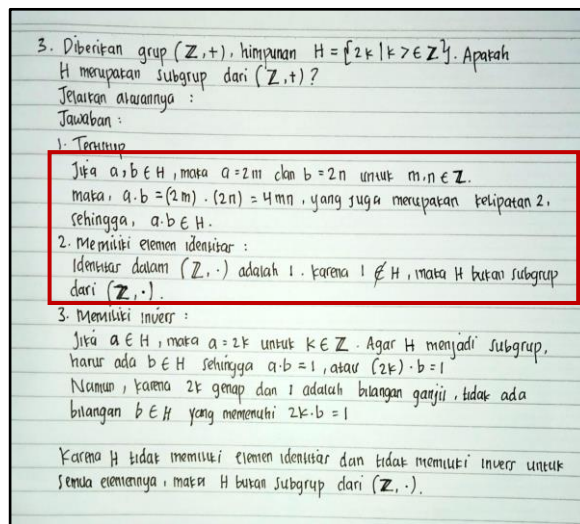 3. Diberikan grup (ℤ,+), himpunan H = {2k | k > ∈ ℤ}. Apakah
H merupakan subgrup dari (ℤ,+) ?
Jelaskan alasannya :
Jawaban :
1. Tertutup
Jika a,b ∈ H, maka a = 2m dan b = 2n untuk m,n ∈ ℤ.
maka, a.b = (2m) . (2n) = 4mn, yang juga merupakan kelipatan 2,
sehingga, a.b ∈ H.
2. Memiliki elemen identitas :
Identitas dalam (ℤ, ·) adalah 1. karena 1 ∉ H, maka H bukan subgrup
dari (ℤ, ·).
3. Memiliki invers :
Jika a ∈ H, maka a = 2k untuk k ∈ ℤ. Agar H menjadi subgrup,
harus ada b ∈ H sehingga a·b = 1, atau (2k) · b = 1
Namun, karena 2k genap dan 1 adalah bilangan ganjil, tidak ada
bilangan b ∈ H yang memenuhi 2k.b = 1
Karena H tidak memiliki elemen identitas dan tidak memiliki invers untuk
semua elemennya, maka H bukan subgrup dari (ℤ, ·).